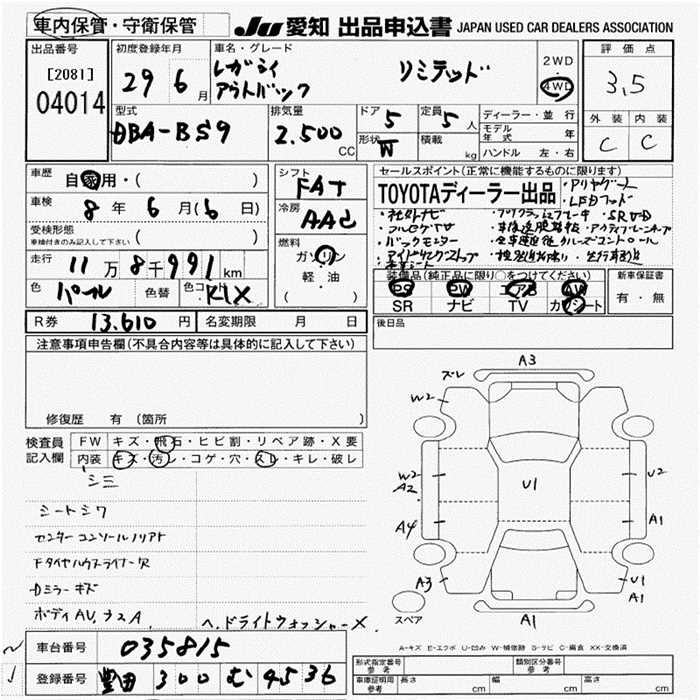 車内保管・守衛保管
JU 愛知 出品申込書 JAPAN USED CAR DEALERS ASSOCIATION
出品番号
[2081]
04014
初度登録年月
29 6月
車名・グレード
レガシィ
アウトバック
リミテッド
2WD
・
4WD
評価点
3,5
外装 内装
C C
型式
DBA-BS9
排気量
2.500 CC
ドア 5
形状 W
定員 5 人
積載 kg
ディーラー・並行
モデル年式 年
ハンドル 左・右
車歴 自家用・( )
車検 8年 6月(6日)
受検形態
車検付きのみ記入して下さい ( )
走行 11万8千991km
色 パール 色替 色コード K1X
R券 13.610円 名変期限 月 日
シフト
FAT
冷房
AAC
燃料
ガソリン
軽・油
( )
セールスポイント(正常に機能するものに限ります)
TOYOTAディーラー出品
・社外ナビ
・フルセグTV
・バックモニター
・アイドリングストップ
・パワーゲート
・LEDフォグ
装備品(純正品に限り○をつけてください)
PS PW エアB AW
SR ナビ TV カワシート
新車保証書
有・無
後日品
注意事項申告欄(不具合内容等は具体的に記入して下さい)
修復歴 有(箇所 )
検査員記入欄
FW キズ・飛石・ヒビ割・リペア跡・X要
内装 キズ・汚レ・コゲ・穴・スレ・キレ・破レ
シミ
シートシワ
センターコンソールノリアト
Fタイヤハウスライナー欠
Dミラーキズ
ボディAV,ナスA
ヘ.ドライトウォッシャーX
車台番号 035815
登録番号 豊田 300 む 4536
A3
ズレ
W2
W2
A2
A4
A3
U1
U2
A1
U1
A1
A1
スペア
A-キズ E-エクボ U-凹み W-補修跡 S-サビ C-腐食 XX-交換済
形式指定番号 参考
類別区分番号 参考
車庫証明用 参考 長さ cm 幅 cm 高さ cm